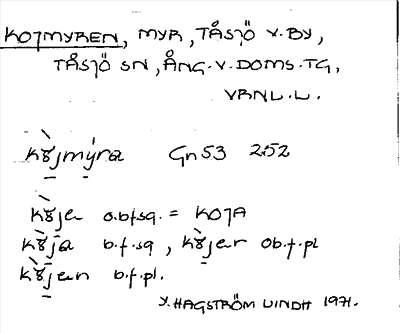 KOJMYREN, MYR, TÅSJÖ V. BY,
TÅSJÖ SN, ÅNG. V. DOMS. TG,
VRNL. L.
kòjmy̠ra Gn53 252
kòje obfsg. = KOJA
kòja b.f.sg, kòjer ob.f.pl
kòjen b.f.pl.
HAGSTRÖM LINDH 1971.